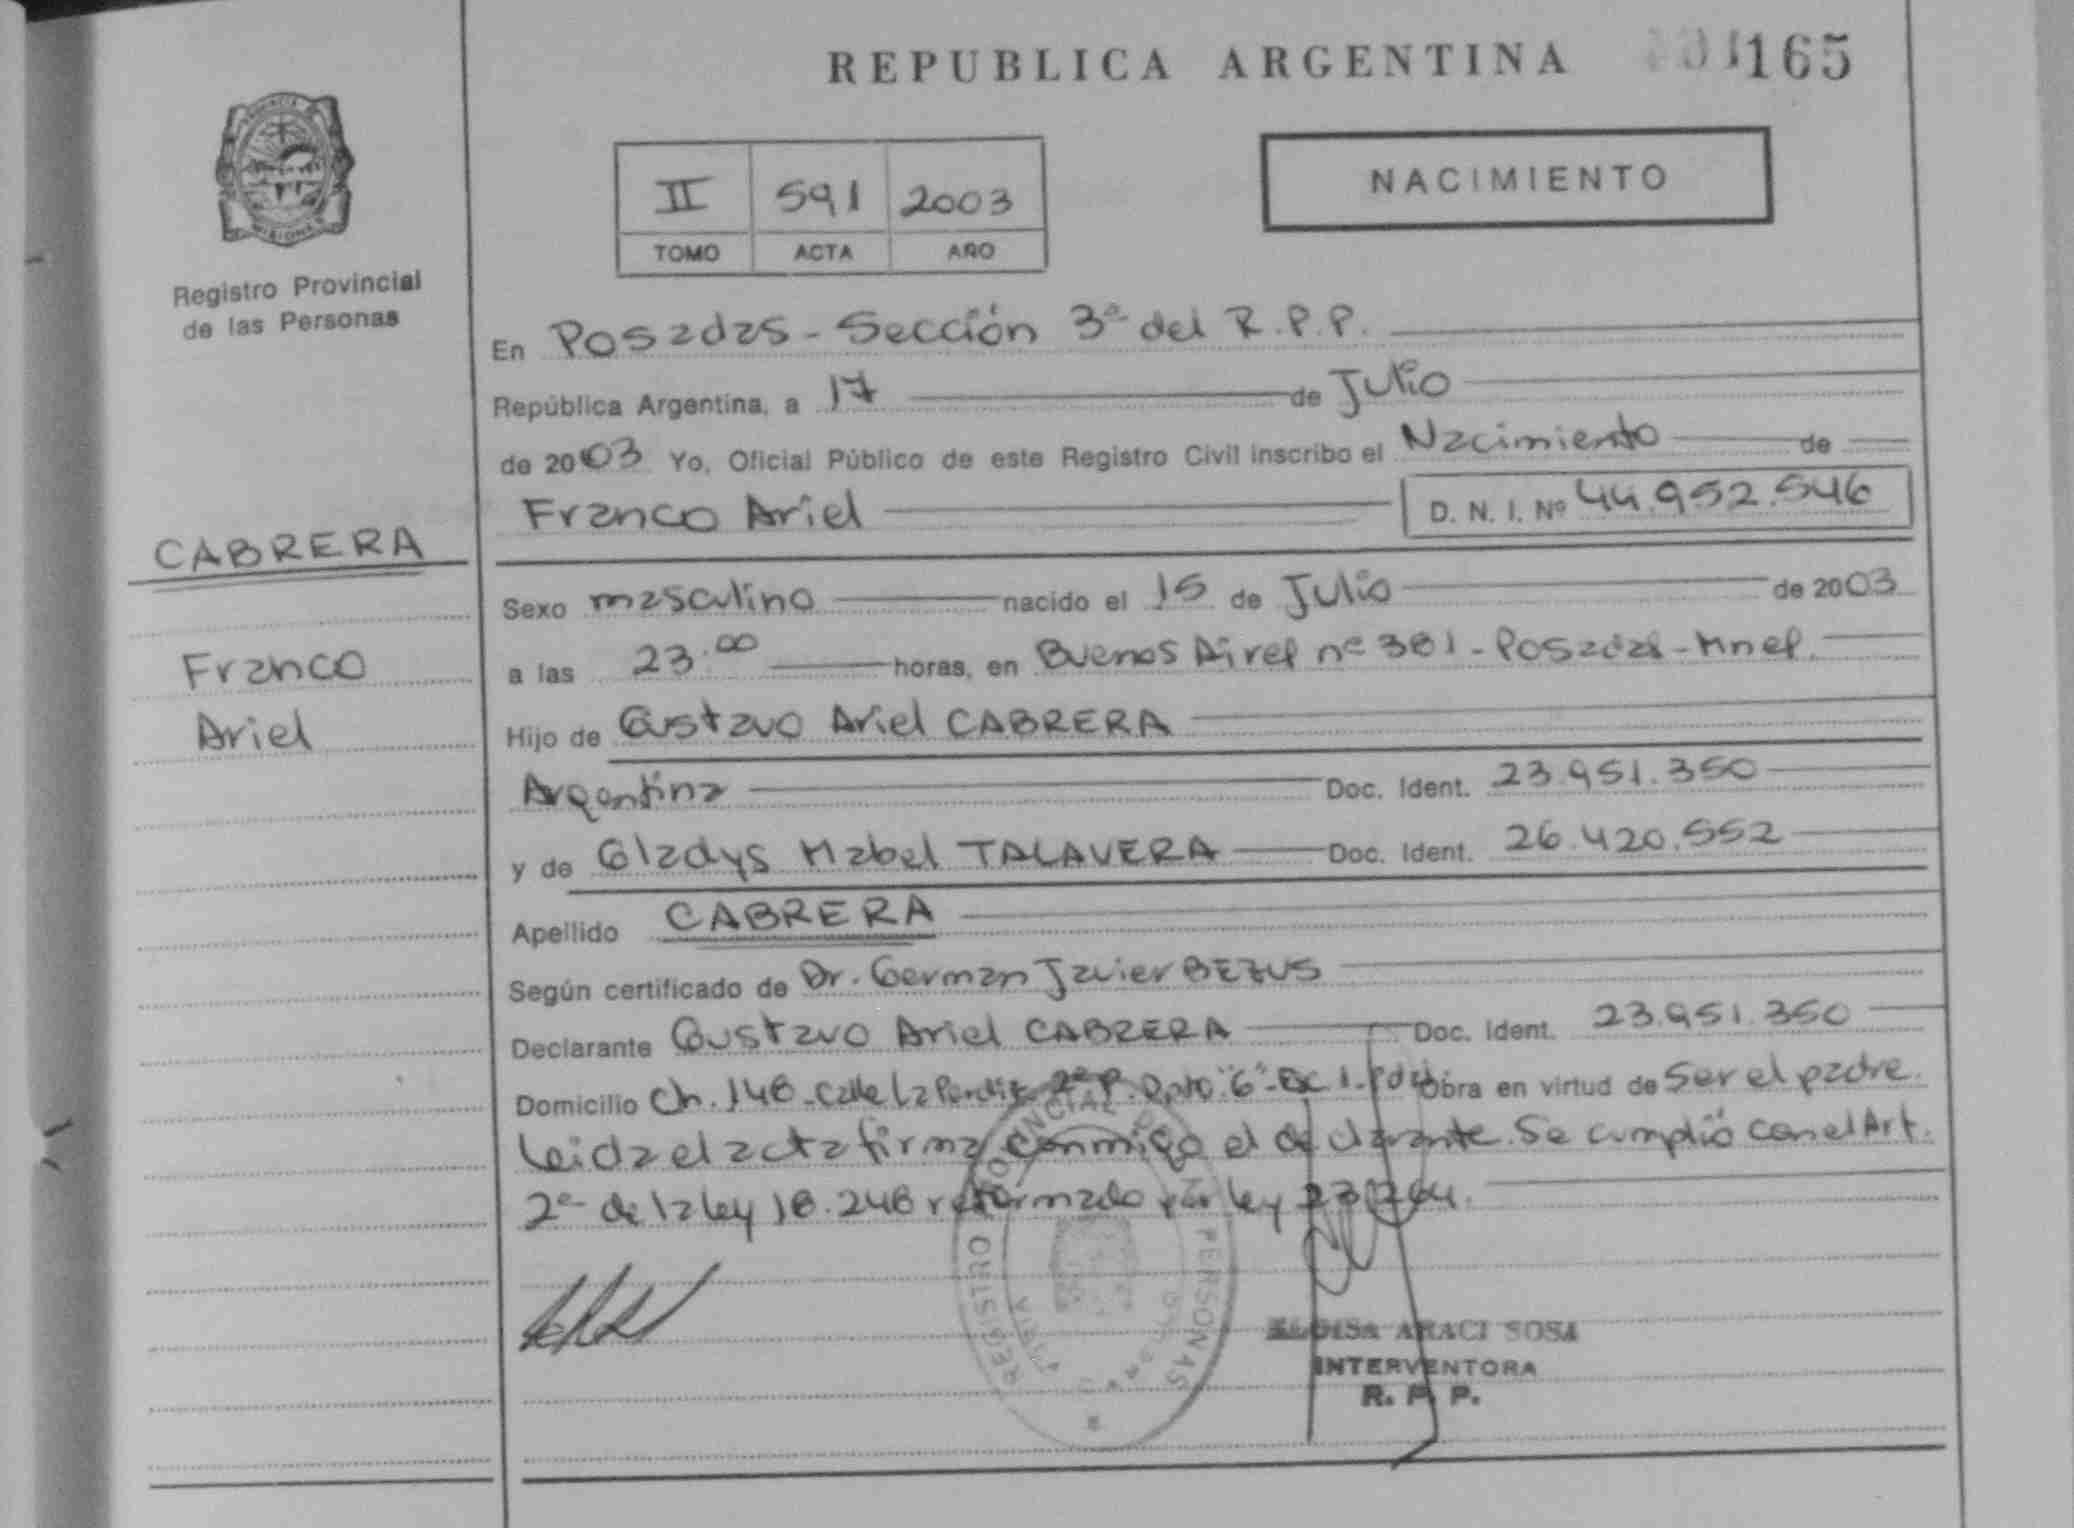 REPUBLICA ARGENTINA 165
PROVINCIA
MISIONES
Registro Provincial
de las Personas
II 591 2003
TOMO ACTA AÑO
NACIMIENTO
En Posadas - Sección 3ª del R.P.P.
República Argentina, a 17 de Julio
de 2003 Yo, Oficial Público de este Registro Civil inscribo el Nacimiento de
Franco Ariel D. N. I. Nº 44.952.546
CABRERA
Franco
Ariel
Sexo masculino nacido el 15 de Julio de 2003
a las 23.00 horas, en Buenos Aires nº 381 - Posadas - Mnes.
Hijo de Gustavo Ariel CABRERA
Argentina Doc. Ident. 23.951.350
y de Gladys Mabel TALAVERA Doc. Ident. 26.420.552
Apellido CABRERA
Según certificado de Dr. German Javier BEZUS
Declarante Gustavo Ariel CABRERA Doc. Ident. 23.951.350
Domicilio Ch. 148 - Calle La Perdiz 2º P. Dpto "6" - Esc 1 - Obra en virtud de Ser el padre.
Leida el acta firma conmigo el declarante. Se cumplió con el Art.
2º de la ley 18.248 reformado por ley 23.264.
REGISTRO PROVINCIAL DE LAS PERSONAS
ELOISA ARACI SOSA
INTERVENTORA
R. P. P.